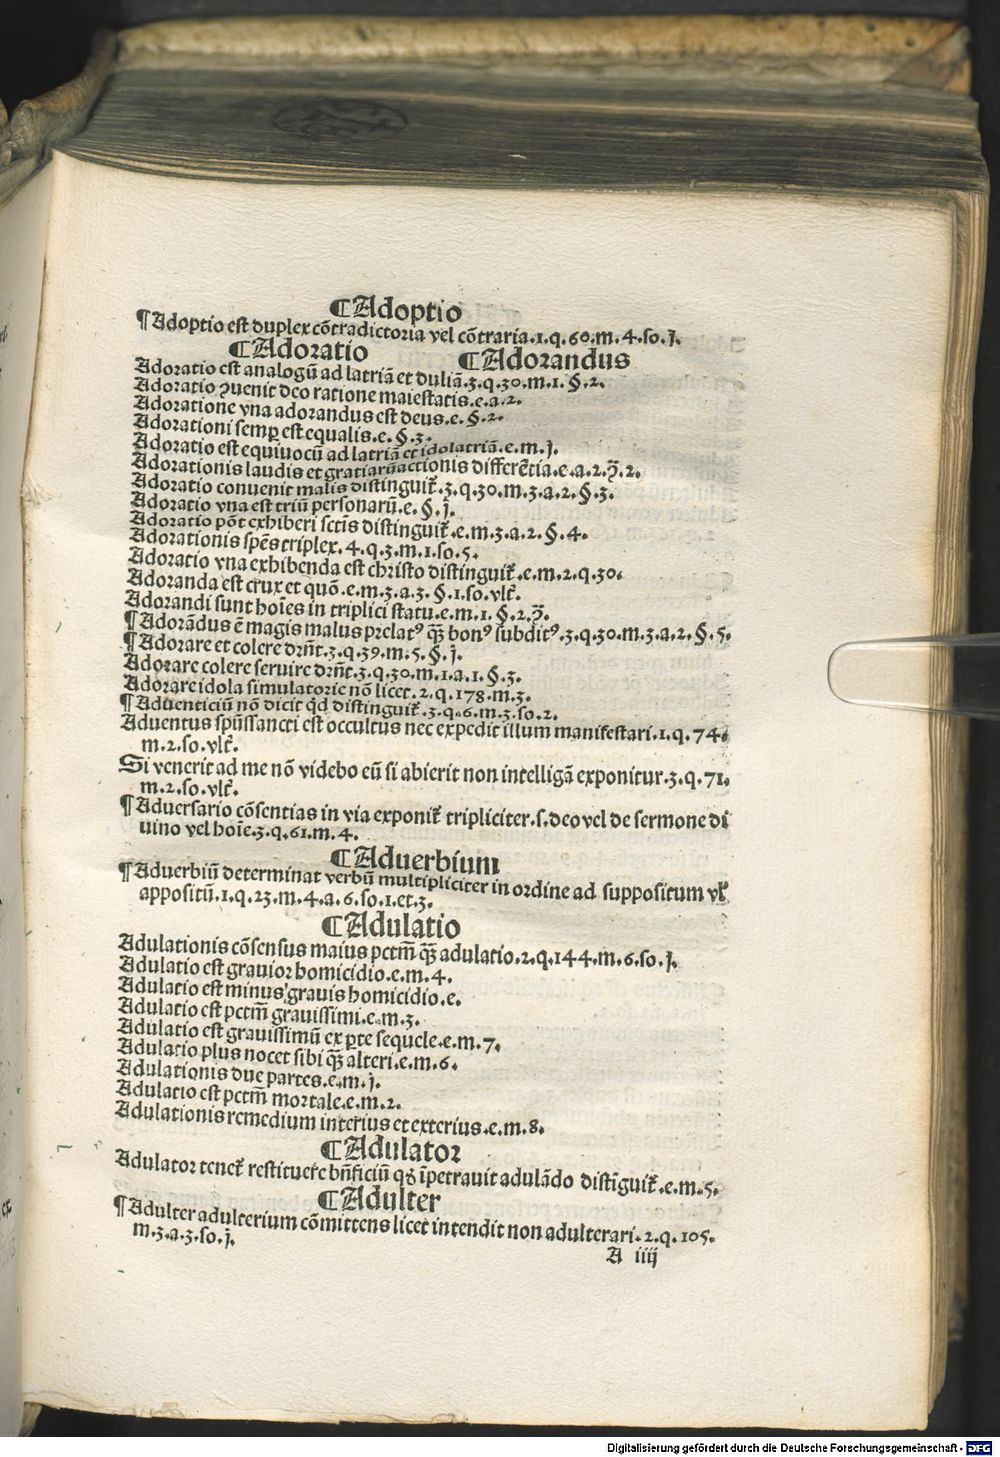 ¶Adoptio
¶Adoptio est duplex cōtradictoria vel cōtraria.1.q.60.m.4.so.j.
¶Adoratio ¶Adorandus
Adoratio est analogū ad latriā et duliā.3.q.30.m.1.§.2.
Adoratio ꝯuenit deo ratione maiestatis.e.a.2.
Adoratione vna adorandus est deus.e.§.2.
Adorationi semꝑ est equalis.e.§.3.
Adoratio est equiuocū ad latriā et idolatriā.e.m.j.
Adorationis laudis et gratiarūactionis differētia.e.a.2.ꝫ.2.
Adoratio conuenit malis distinguit᷑.3.q.30.m.3.a.2.§.3.
Adoratio vna est triū personarū.e.§.j.
Adoratio pōt exhiberi sctīs distinguit᷑.e.m.3.a.2.§.4.
Adorationis spēs triplex.4.q.3.m.1.so.5.
Adoratio vna exhibenda est christo distinguit᷑.e.m.2.q.30.
Adoranda est crux et quō.e.m.3.a.3.§.1.so.vlt᷑.
Adorandi sunt hoīes in triplici statu.e.m.1.§.2.ꝫ.
¶Adorādus ē magis malus prelatꝰ qƺ̄ bonꝰ subditꝰ.3.q.30.m.3.a.2.§.5.
¶Adorare et colere drn̄t.3.q.39.m.5.§.j.
Adorare colere seruire drn̄t.3.q.30.m.1.a.1.§.3.
Adorare idola simulatorie nō licet.2.q.178.m.3.
¶Aduenticiū nō dicit qd̄ distinguit᷑.3.q.6.m.3.so.2.
Aduentus spūssancti est occultus nec expedit illum manifestari.1.q.74.
m.2.so.vlt᷑.
Si venerit ad me nō videbo eū si abierit non intelligā exponitur.3.q.71.
m.2.so.vlt᷑.
¶Aduersario cōsentias in via exponit᷑ tripliciter.s.deo vel de sermone di
uino vel hoīe.3.q.61.m.4.
¶Aduerbium
¶Aduerbiū determinat verbū multipliciter in ordine ad suppositum vl᷑
appositū.1.q.23.m.4.a.6.so.1.et.3.
¶Adulatio
Adulationis cōsensus maius pctm̄ qƺ̄ adulatio.2.q.144.m.6.so.j.
Adulatio est grauior homicidio.e.m.4.
Adulatio est minus grauis homicidio.e.
Adulatio est pctm̄ grauissimi.e.m.3.
Adulatio est grauissimū ex ꝑte sequele.e.m.7.
Adulatio plus nocet sibi qƺ̄ alteri.e.m.6.
Adulationis due partes.e.m.j.
Adulatio est pctm̄ mortale.e.m.2.
Adulationis remedium interius et exterius.e.m.8.
¶Adulator
Adulator tenet᷑ restituere bn̄ficiū qd̄ īpetrauit adulādo distīguit᷑.e.m.5.
¶Adulter
¶Adulter adulterium cōmittens licet intendit non adulterari.2.q.105.
m.3.a.3.so.j.
A iiij
Digitalisierung gefördert durch die Deutsche Forschungsgemeinschaft - DFG